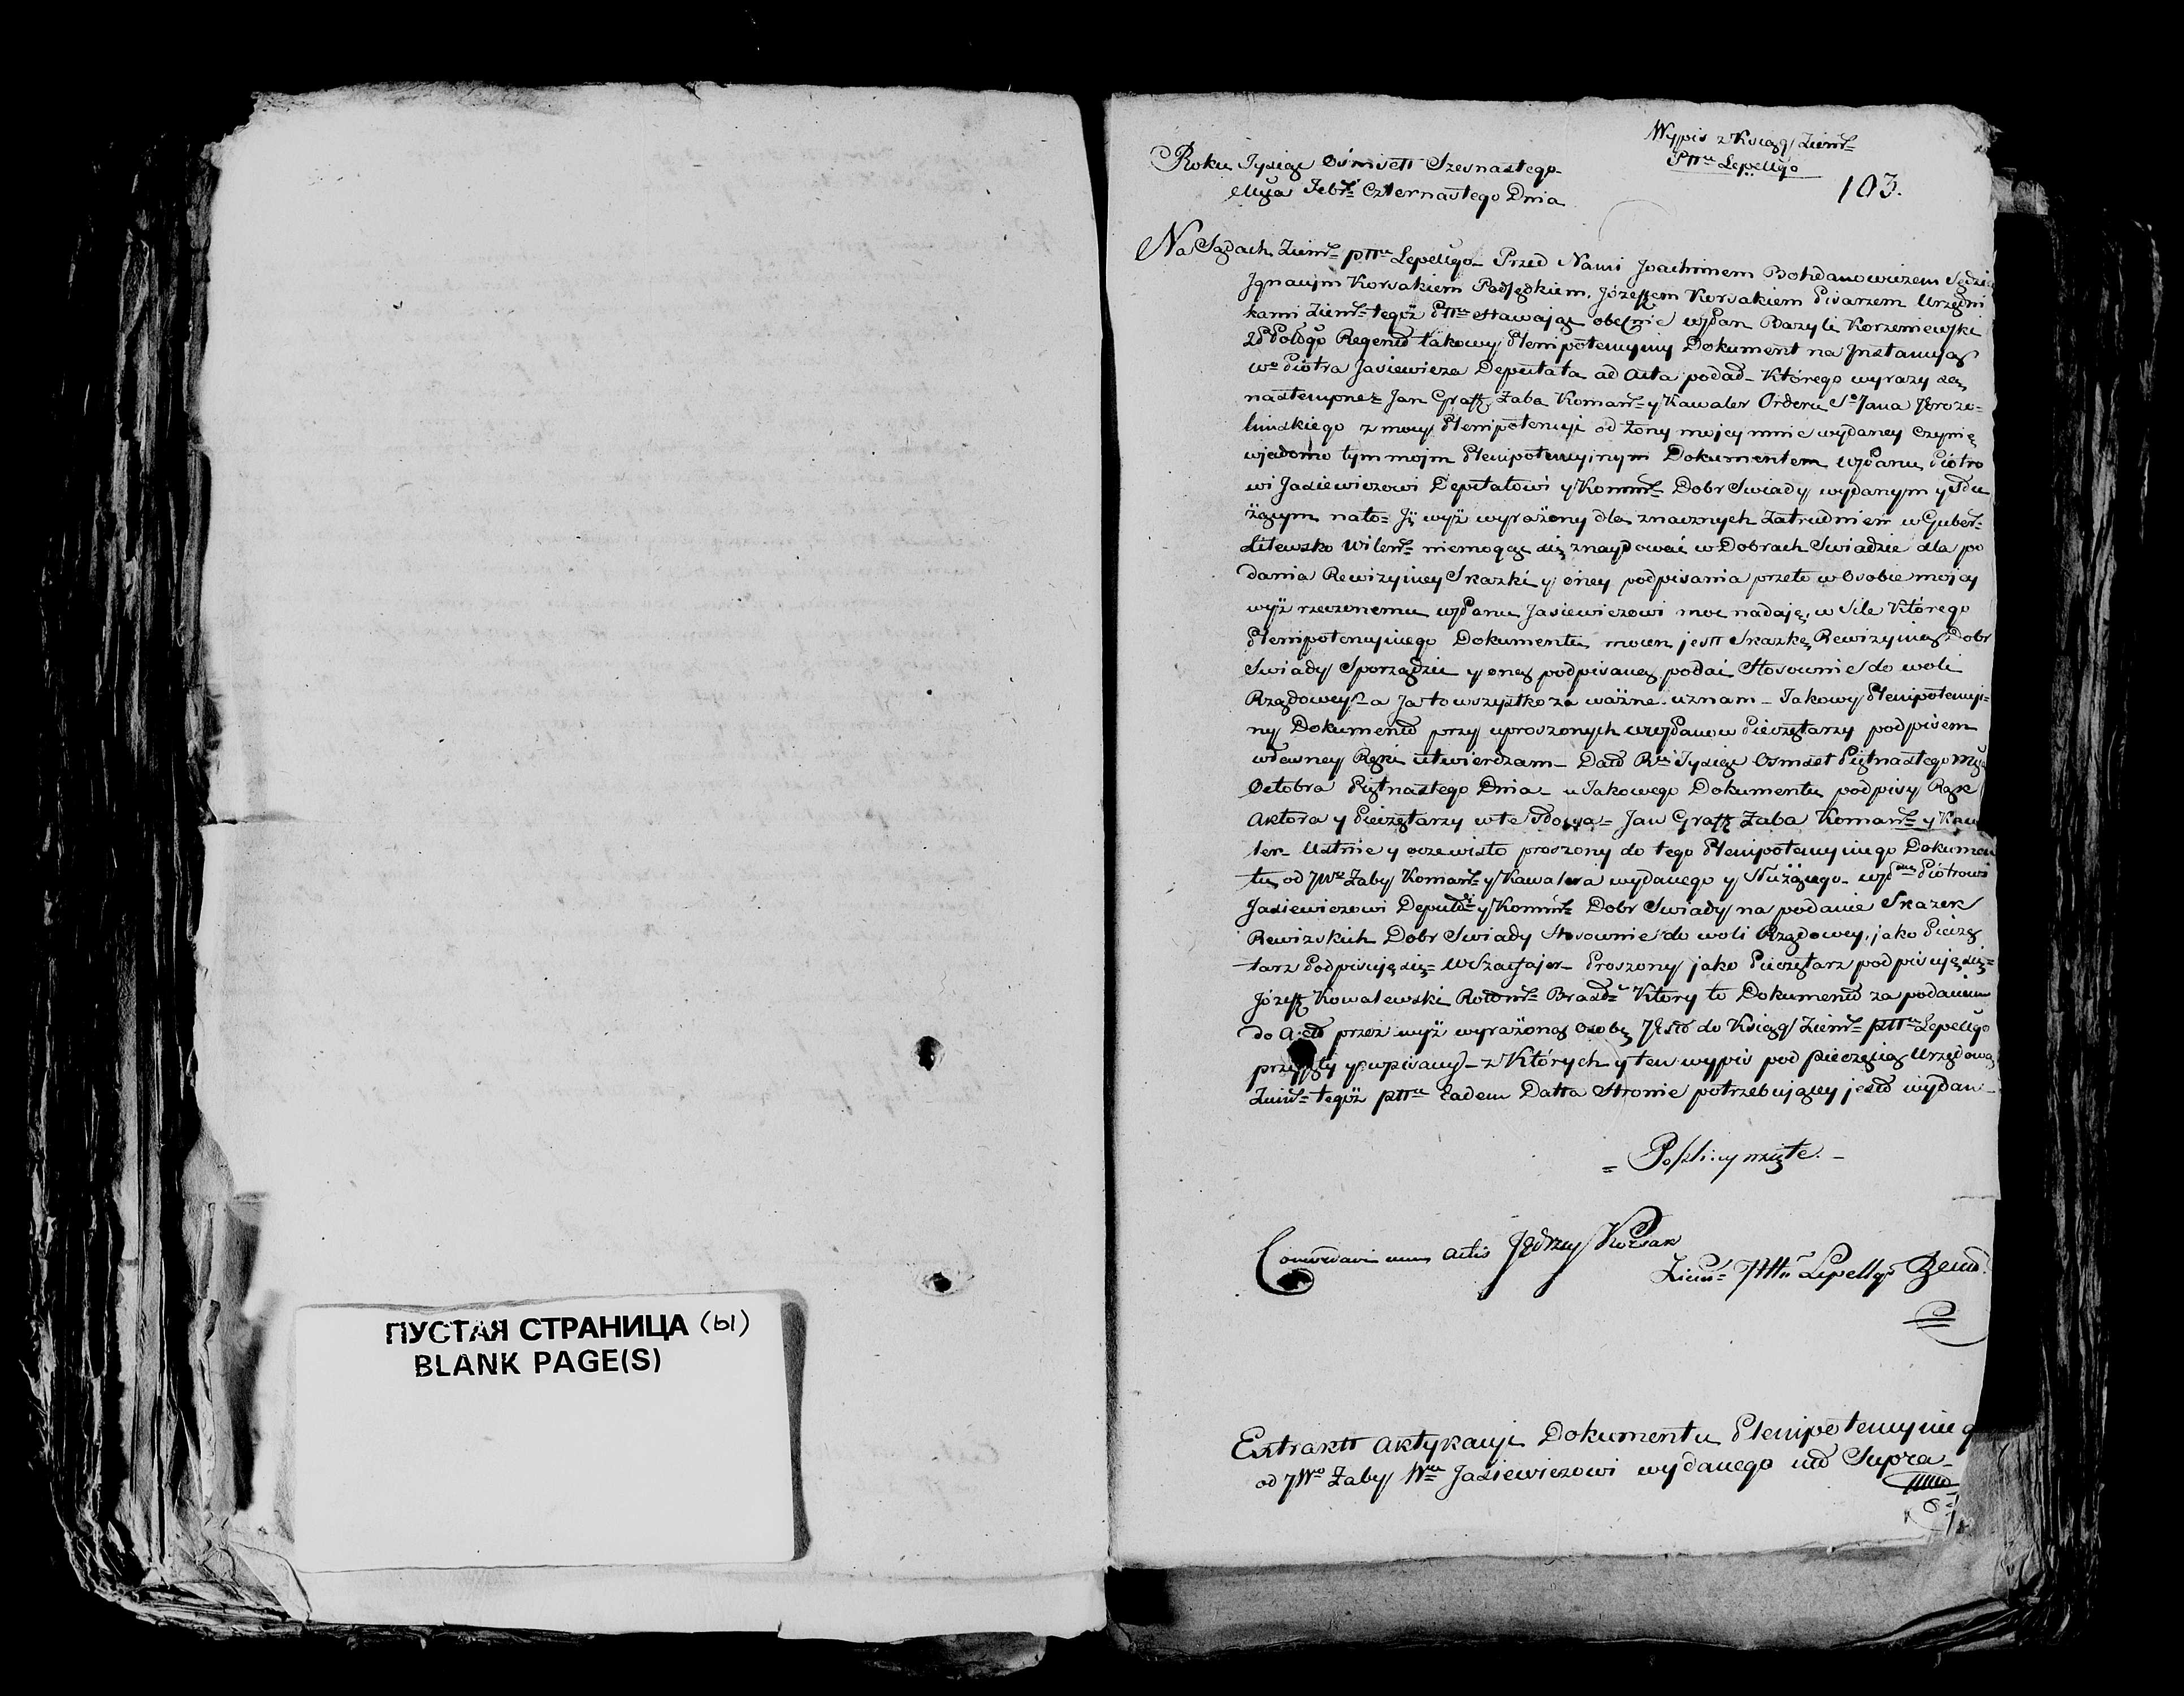 ПУСТАЯ СТРАНИЦА (ы)
BLANK PAGE(S)
Wypis z Xsiąg Ziem=
Pttu Lepellgo
103.
Roku Tysiąc Ośmsett Szesnastego
Msca Febr= Czternastego Dnia
Na Sądach Ziem= pttu Lepellgo Przed Nami Joachimem Bohdanowiczem Sędzią
Ignacym Korsakiem Podsędkiem, Józeffem Korsakiem Pisarzem Urzędni
kami Ziem= tegoż Pttu stawając obecnie wJPan Bazyli Korzeniewski
Regend takowy Plenipotencyiny Dokument na Instancyą
wo Piotra Jasiewicza Deputata ad Acta podał Którego wyrazy są
nastempne= Jan Graff Żaba Komand= y Kawaler Orderu So Jana Jeroze=
limskiego z mocy Plenipotencyi od Żony mojey mnie wydaney Czynię
wjadomo tym mojm Plenipotencyjnym Dokumentem wJPanu Piotro
wi Jasiewiczowi Deputatowi y Kommi= Dobr Swiady wydanym y Słu
żącym nato= Iż wyż wyrażony dla znacznych Zatrudnień w Guber=
Litewsko Wilen= niemogąc się znaydować w Dobrach Swiadzie dla po
dania Rewizyiney Skazki y oney podpisania przeto w Osobie mojey
wyż rzeczonemu wJPanu Jasiewiczowi moc nadaję, w Sile Którego
Plenipotencyinego Dokumentu mocen jestt Skazkę Rewizyiną Dobr
Swiady Sporządzić y oną podpisaną podać Stosownie do woli
Rządowey= a Ja to wszystko za ważne uznam Takowy Plenipotencyi=
ny Dokument przy uproszonych wwJPanow Pieczętarzy podpisem
własney Ręki utwierdzam Datt Ru Tysiąc Osmset Piętnastego Msca
Octobra Piętnastego Dnia u Takowego Dokumentu podpisy Rąk
Aktora y Pieczętarzy w te Słowa= Jan Graff Żaba Komand= y Kawa
ler Ustnie y oczewisto proszony do tego Plenipotencyinego Dokumen
tu od JWo Żaby Komand= y Kawalera wydanego y Służącego wJPanu Piotrowi
Jasiewiczowi Deput= y Kommi= Dobr Swiady na podanie Skazek
Rewizskich Dobr Swiady Stosownie do woli Rządowey, jako Pieczę
tarz Podpisuję się= Proszony jako Pieczętarz podpisuję się=
Józeff Kowalewski Rotm= Brasł= Ktory to Dokument za podaniem
do Act przez wyż wyrażoną Osobę Jest do Xsiąg Ziem= pttu Lepellgo
przyjęty y wpisany z Których y ten wypis pod pieczęcią Urzędową
Ziem= tegoż pttu Eadem Datta Stronie potrzebującey jest wydan
= Poszliny wzięte. –
Concordavi cum Actis Jędrzey Korsak
Ziem= Pttu Lepellgo
Extraktt Aktykacyi Dokumentu Plenipotencyinego
od JWo Żaby Wu Jasiewiczowi wydanego utt Supra